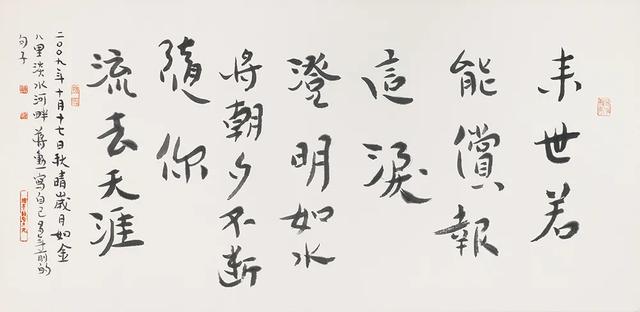 来世若
能償報
這淚
澄明如水
將朝夕不斷
隨你
流去天涯
二00九年十月十七日秋晴歲月如金
八里淡水河畔蔣勳寫自己年前的
句子